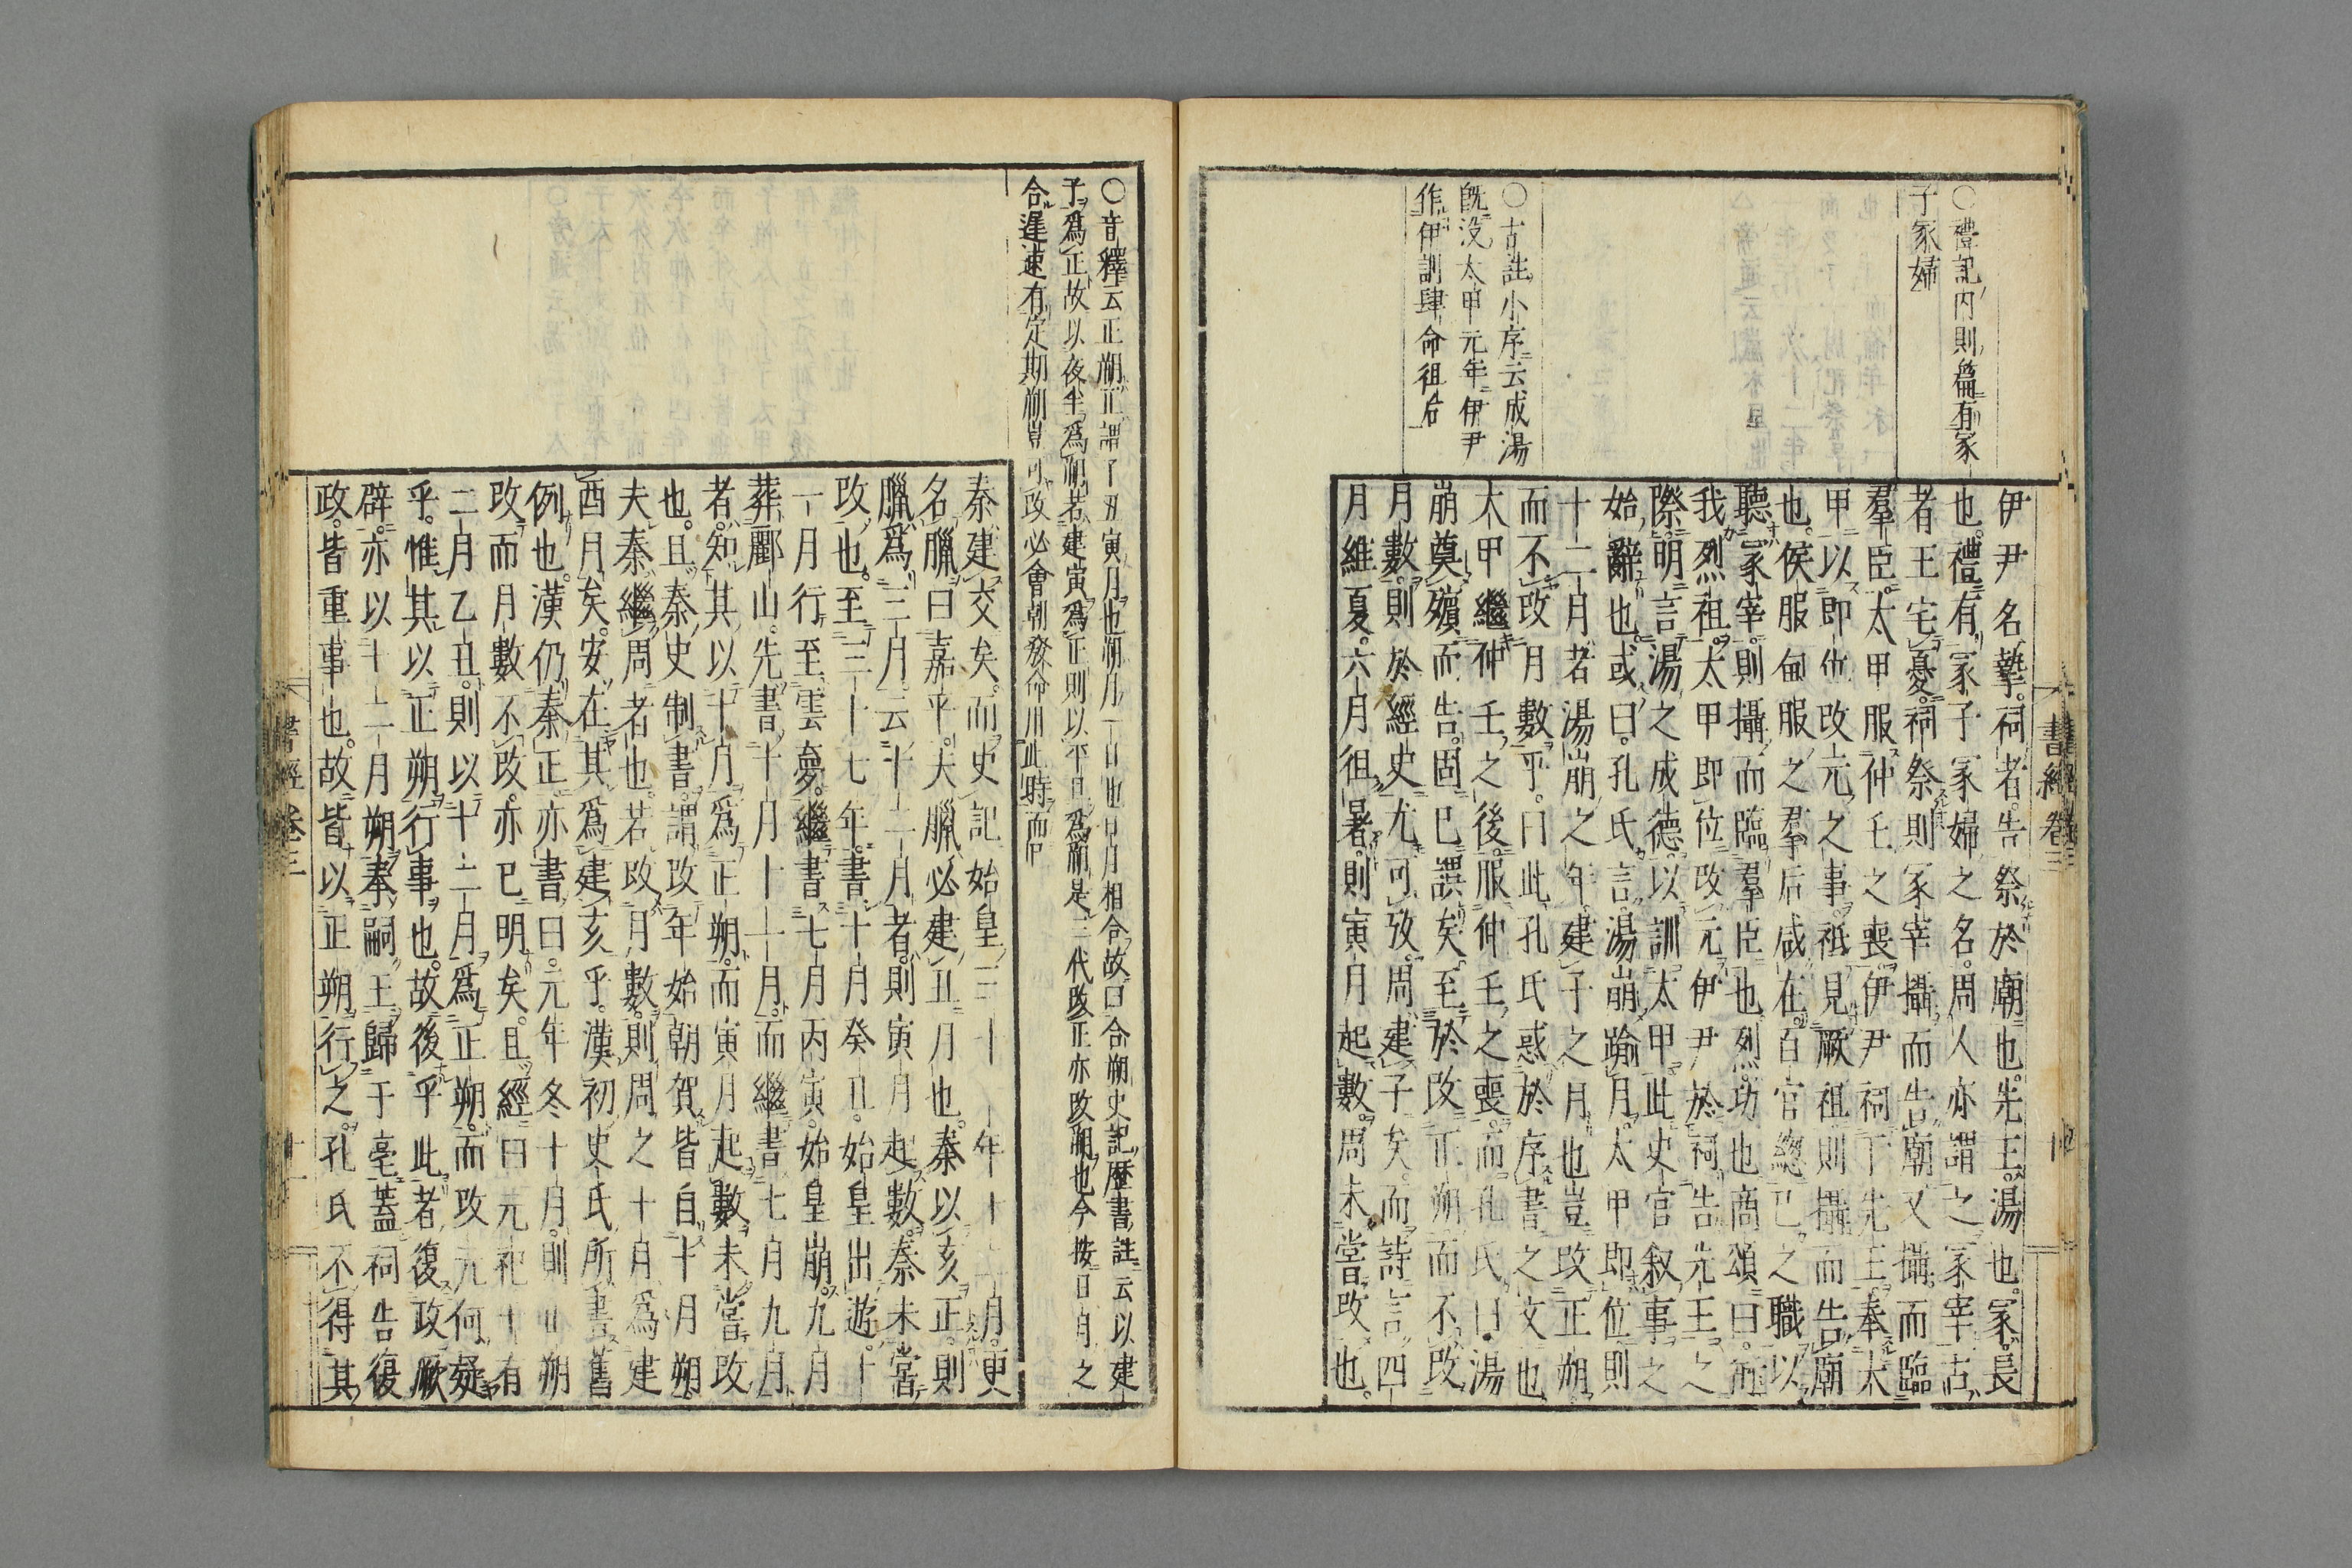 書經卷三
○禮記内則篇有冢
子冢婦
○古註小序云成湯
既没太甲元年伊尹
作伊訓肆命徂后
伊尹名摯。祠者。告祭於廟也。先王。湯也。冢。長
也。禮有冢子冢婦之名。周人亦謂之冢宰。古
者王宅憂。祠祭則冢宰攝而告廟又攝而臨
羣臣。太甲服仲壬之喪。伊尹祠于先王。奉太
甲以即位改元之事。祗見厥祖則攝而告廟
也。侯服甸服之羣后咸在。百官總已之職以
聽冢宰。則攝而臨羣臣也。烈。功也商頌曰。衎
我烈祖。太甲即位改元伊尹於祠告先王之
際。明言湯之成德。以訓太甲。此史官叙事之
始辭也。或曰。孔氏言。湯崩踰月。太甲即位則
十二月者湯崩之年。建子之月也豈改正朔
而不改月數乎。曰此孔氏惑於序書之文也
太甲繼仲壬之後。服仲壬之喪。而孔氏曰。湯
崩奠殯而告。固已誤矣。至於改正朔而不改
月數。則於經史尤可攷。周建子矣。而詩言四
月維夏。六月徂暑。則寅月起數。周未嘗改也。
○音釋云正朔正謂子丑寅月也朔月一日也日月相合故曰合朔史記歷書註云以建
子爲正故以夜半爲朔若建寅爲正則以平旦爲朔是三代改正亦改朔也今按日月之
合遲速有定期朔豈可改必會朝發命用此時而
秦建亥矣。而史記始皇三十一年十二月。更
名臘曰嘉平。夫臘必建丑月也。秦以亥正。則
臘爲三月云十二月者。則寅月起數。秦未嘗
改也。至三十七年。書十月癸丑。始皇出遊。十
一月行至雲夢。繼書七月丙寅。始皇崩。九月
葬酈山。先書十月十一月。而繼書七月九月
者。知其以十月爲正朔。而寅月起數未嘗改
也。且秦史制書。謂改年始朝賀。皆自十月朔。
夫秦繼周者也。若改月數。則周之十月爲建
酉月矣。安在其爲建亥乎。漢初史氏所書舊
例也。漢仍秦正亦書曰。元年冬十月。則正朔
改而月數不改。亦已明矣。且經曰元祀十有
二月乙丑。則以十二月爲正朔。而改元何疑
乎。惟其以正朔行事也。故後乎此者。復政厥
辟。亦以十二月朔奉嗣王歸于亳蓋祠告復
政。皆重事也。故皆以正朔行之。孔氏不得其
書經卷三
十一